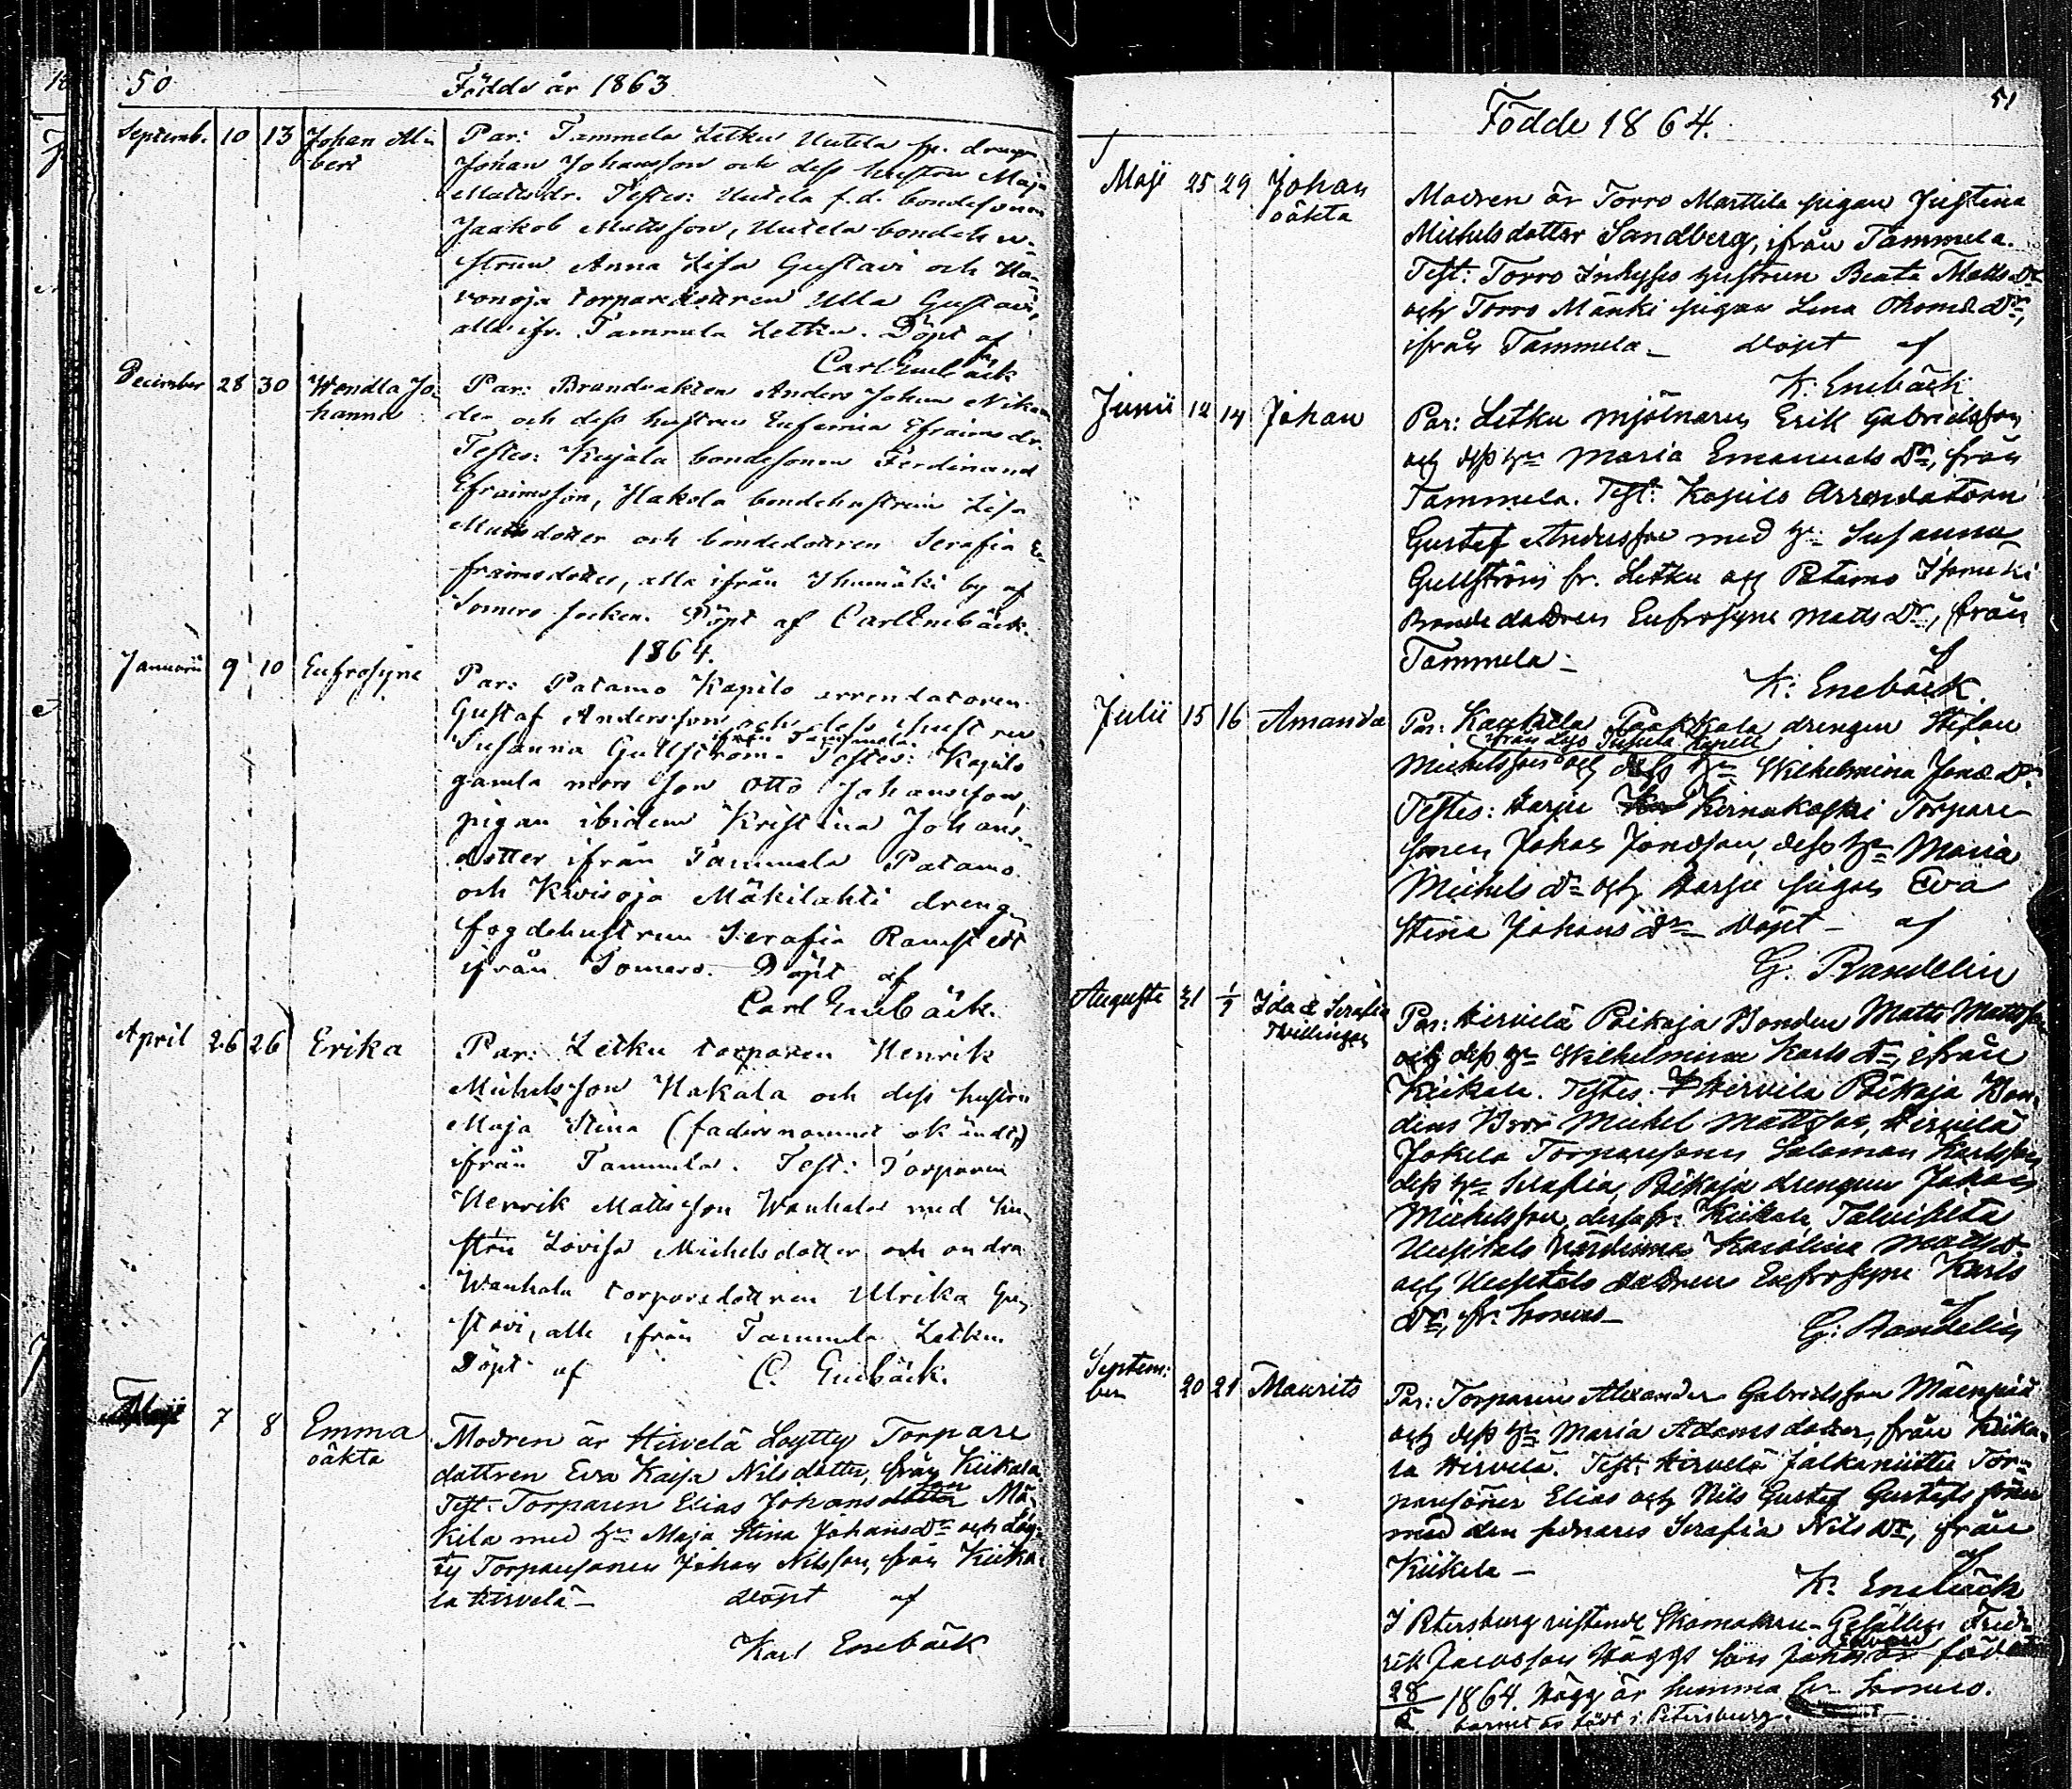 50 Födde år 1863
Septemb. 10 13 Johan Al-
bert
Par: Tammela Letku Uutela
Johan Johansson och dess hustru Maja
Mattsdr. Testes: Uutela f.d. bondesonen
Jaakob Mattsson, Uutela bondeh u-
strun Anna Lisa Gustavi och Ha-
ronoja torparedottren Ulla Gustavi,
alla ifr. Tammela Letku. Döpt af
Carl Enebäck
December 28 30 Wendla Jo-
hanna
Par: Brandvakten Anders Johan
och dess hustru Eufemia Efraimsdr.
Testes: Kujala bondesonen Ferdinand
Efraimsson, Hakola bondehustrun Lisa
Mattsdotter och bondedottren Serafia E-
fraimsdotter, alla ifrån Ihamäki by af
Somero socken. Döpt af Carl Enebäck.
1864.
Januarii 9 10 Eufrosyne
Par: Patamo Kopilo arrendatoren
Gustaf Andersson och dess hustru
ifrån Tammela.
Susanna Gullström. Testes: Kopilo
gamla mors son Otto Johansson,
pigan ibidem Kristina Johans-
dotter ifrån Tammela Patamo
och Kivisoja Mäkilahti dreng-
fogdehustrun Serafia Ramstedt
ifrån Somero. Döpt af
Carl Enebäck.
April 26 26 Erika
Par: Letku torparen Henrik
Michelsson Hakala och dess hustru
Maja Stina (fadersnamnet okändt)
ifrån Tammela. Test: Torparen
Henrik Mattsson Wanhala med hu-
stru Lovisa Michelsdotter och andra
Wanhala torparedottren Ulrika Gu-
stavi, alla ifrån Tammela Letku.
Döpt af C. Enebäck.
Maji 7 8 Emma
oäkta
Modren är Hirvelä Löytty Torpare
dottren Eva Kaisa Nilsdotter, från Kiikala,
Test: Torparen Elias Johansson Mä-
kilä med hn Maja Stina Johansdr och Löy-
ty Torparesonen Johan Nilsson, från Kiika-
la Hirvelä - döpt af
Karl Enebäck
51
Födde 1864.
Maji 25 29 Johan
oäkta
Modren är Torro Marttila pigan Justina
Michelsdotter Sandberg, ifrån Tammela.
Test: Torro hustrun Beata Mattsdr
och Torro Mänki pigan Lena Thomædr,
ifrån Tammela - döpt af
K: Enebäck
Junii 12 14 Johan
Par: Letku mjölnaren Erik Gabrielsson
och dess hn Maria Emanuelsdr, från
Tammela. Test: Kopilo Arrendatorn
Gustaf Andersson med hn Susanna
Gullström fr. Letku och Patamo
Bondedottren Eufrosyne Mattsdr, från
Tammela - af
K: Enebäck.
Julii 15 16 Amanda
Par: Kaukela Paakkala drengen Stefan
Michelsson och dess hn Wilhelmina Jonædr
Testes: Harju Kirnakoski Torpare-
sonen Johan Jonasson, dess hn Maria
Michelsdr och Harju pigan Eva
Stina Johansdr - döpt - af
G. Bandelin
Augusti 31 1/9 Ida & Serafia
Twillingar
Par: Hirvelä Poikoja Bonden Matts Mattsson
och dess hn Wilhelmina Karlsdr, ifrån
Kiikala. Testes: Hirvelä Poikoja Bon-
dens Bror Michel Mattsson, Hirvelä
Jokela Torparesonen Salomon Karlsson
dess hn Serafia, Poikoja drengen Johan
Michelsson, dessa fr. Kiikala,
Uusitalo Karolina Mattsdr
och Uusitalo dottren Eufrosyne Karls
dr, fr. Somero -
G: Bandelin
Septem-
ber 20 21 Maurits
Par: Torparen Alexander Gabrielsson Mäenpää
och dess hn Maria Adamsdotter, från Kiika-
la Hirvelä. Test: Hirvelä Jalkaniittu Tor-
paresöner Elias och Nils Gustaf Gustafssöner
med den senares Serafia Nilsdr, från
Kiikala - af
K: Enebäck
I Petersburg vistande Skomakare-Gesällen Fred-
Edvard
rik Jacobsson Häggs son Johan är född
28/5 1864. Hägg är hemma fr. Somero.
barnet är född i Petersburg.